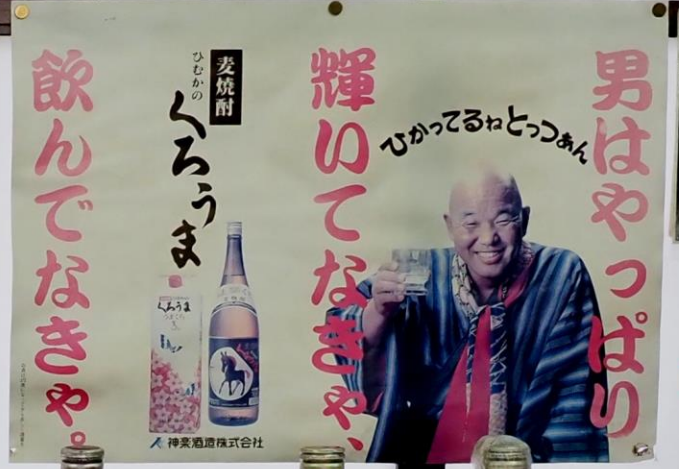 男はやっぱり
ひかってるねとっつぁん
輝いてなきゃ、
麦焼酎
ひむかの
くろうま
くろうま
神楽酒造株式会社
飲んでなきゃ。